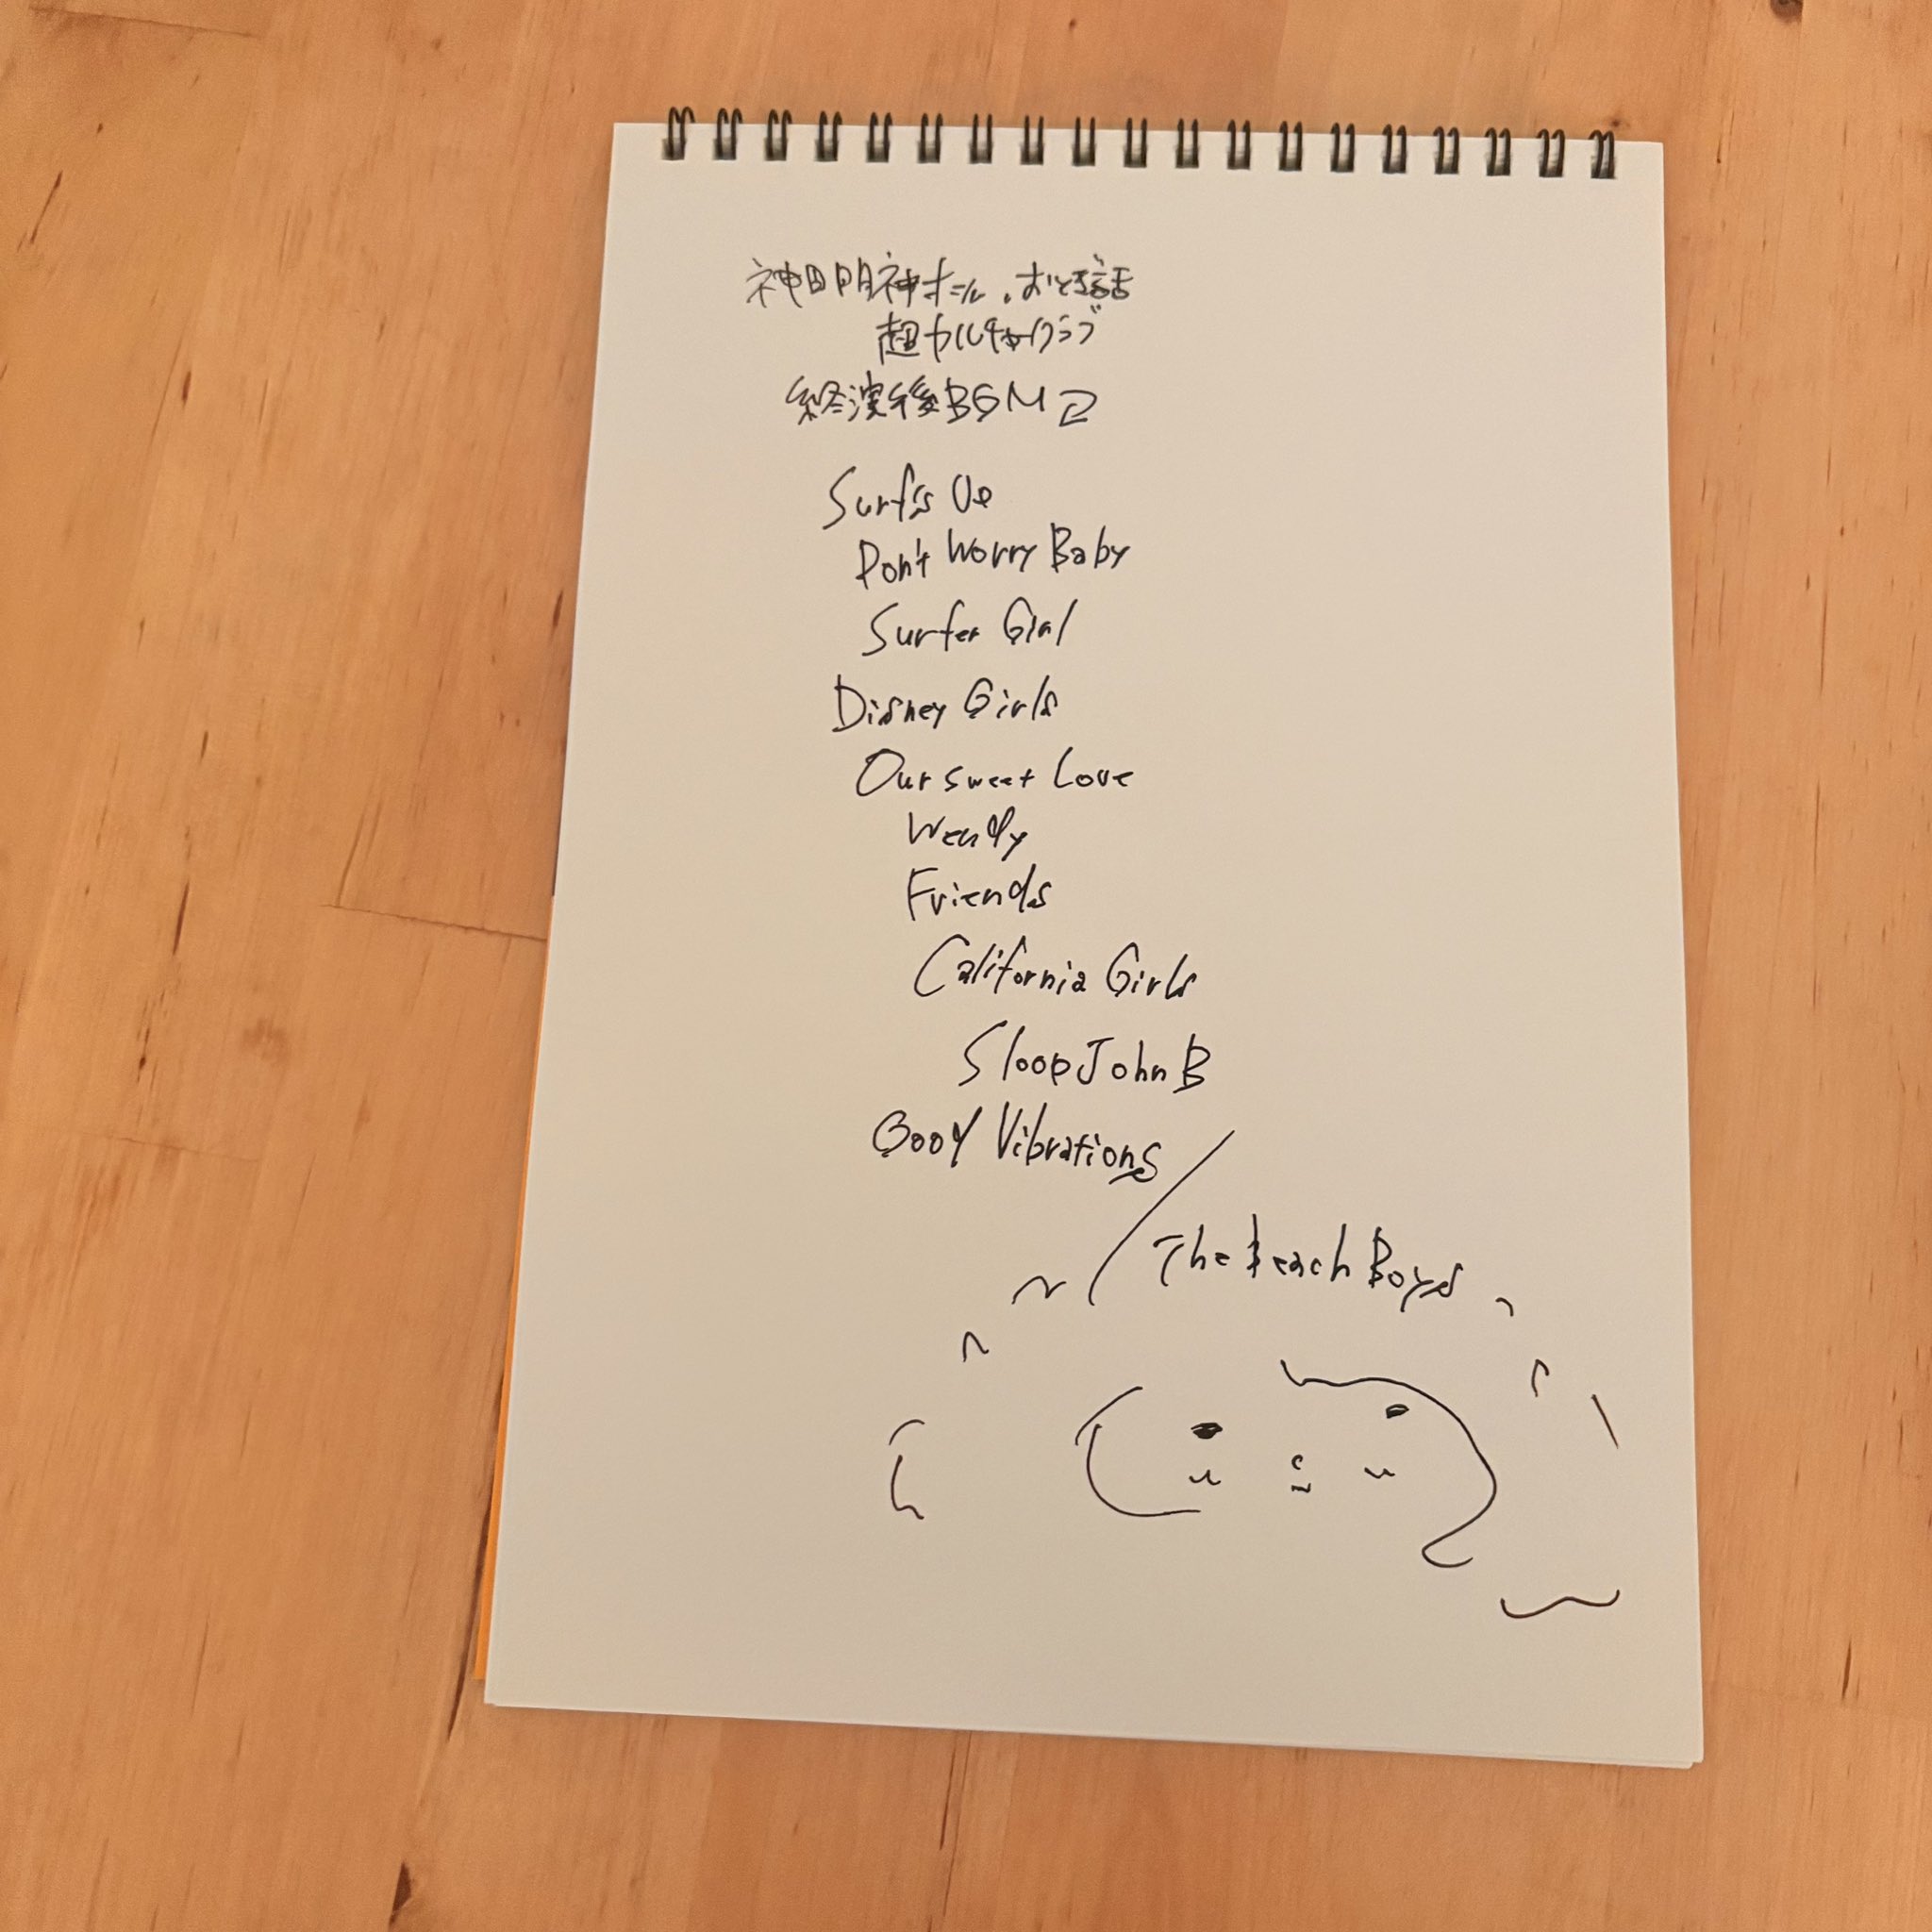 神田明神ホール、おとぎ話
超カルチャークラブ
終演後BGM2
Surf's Up
Don't Worry Baby
Surfer Girl
Disney Girls
Our sweet Love
Wendy
Friends
California Girls
Sloop John B
Good Vibrations
/The Beach Boys